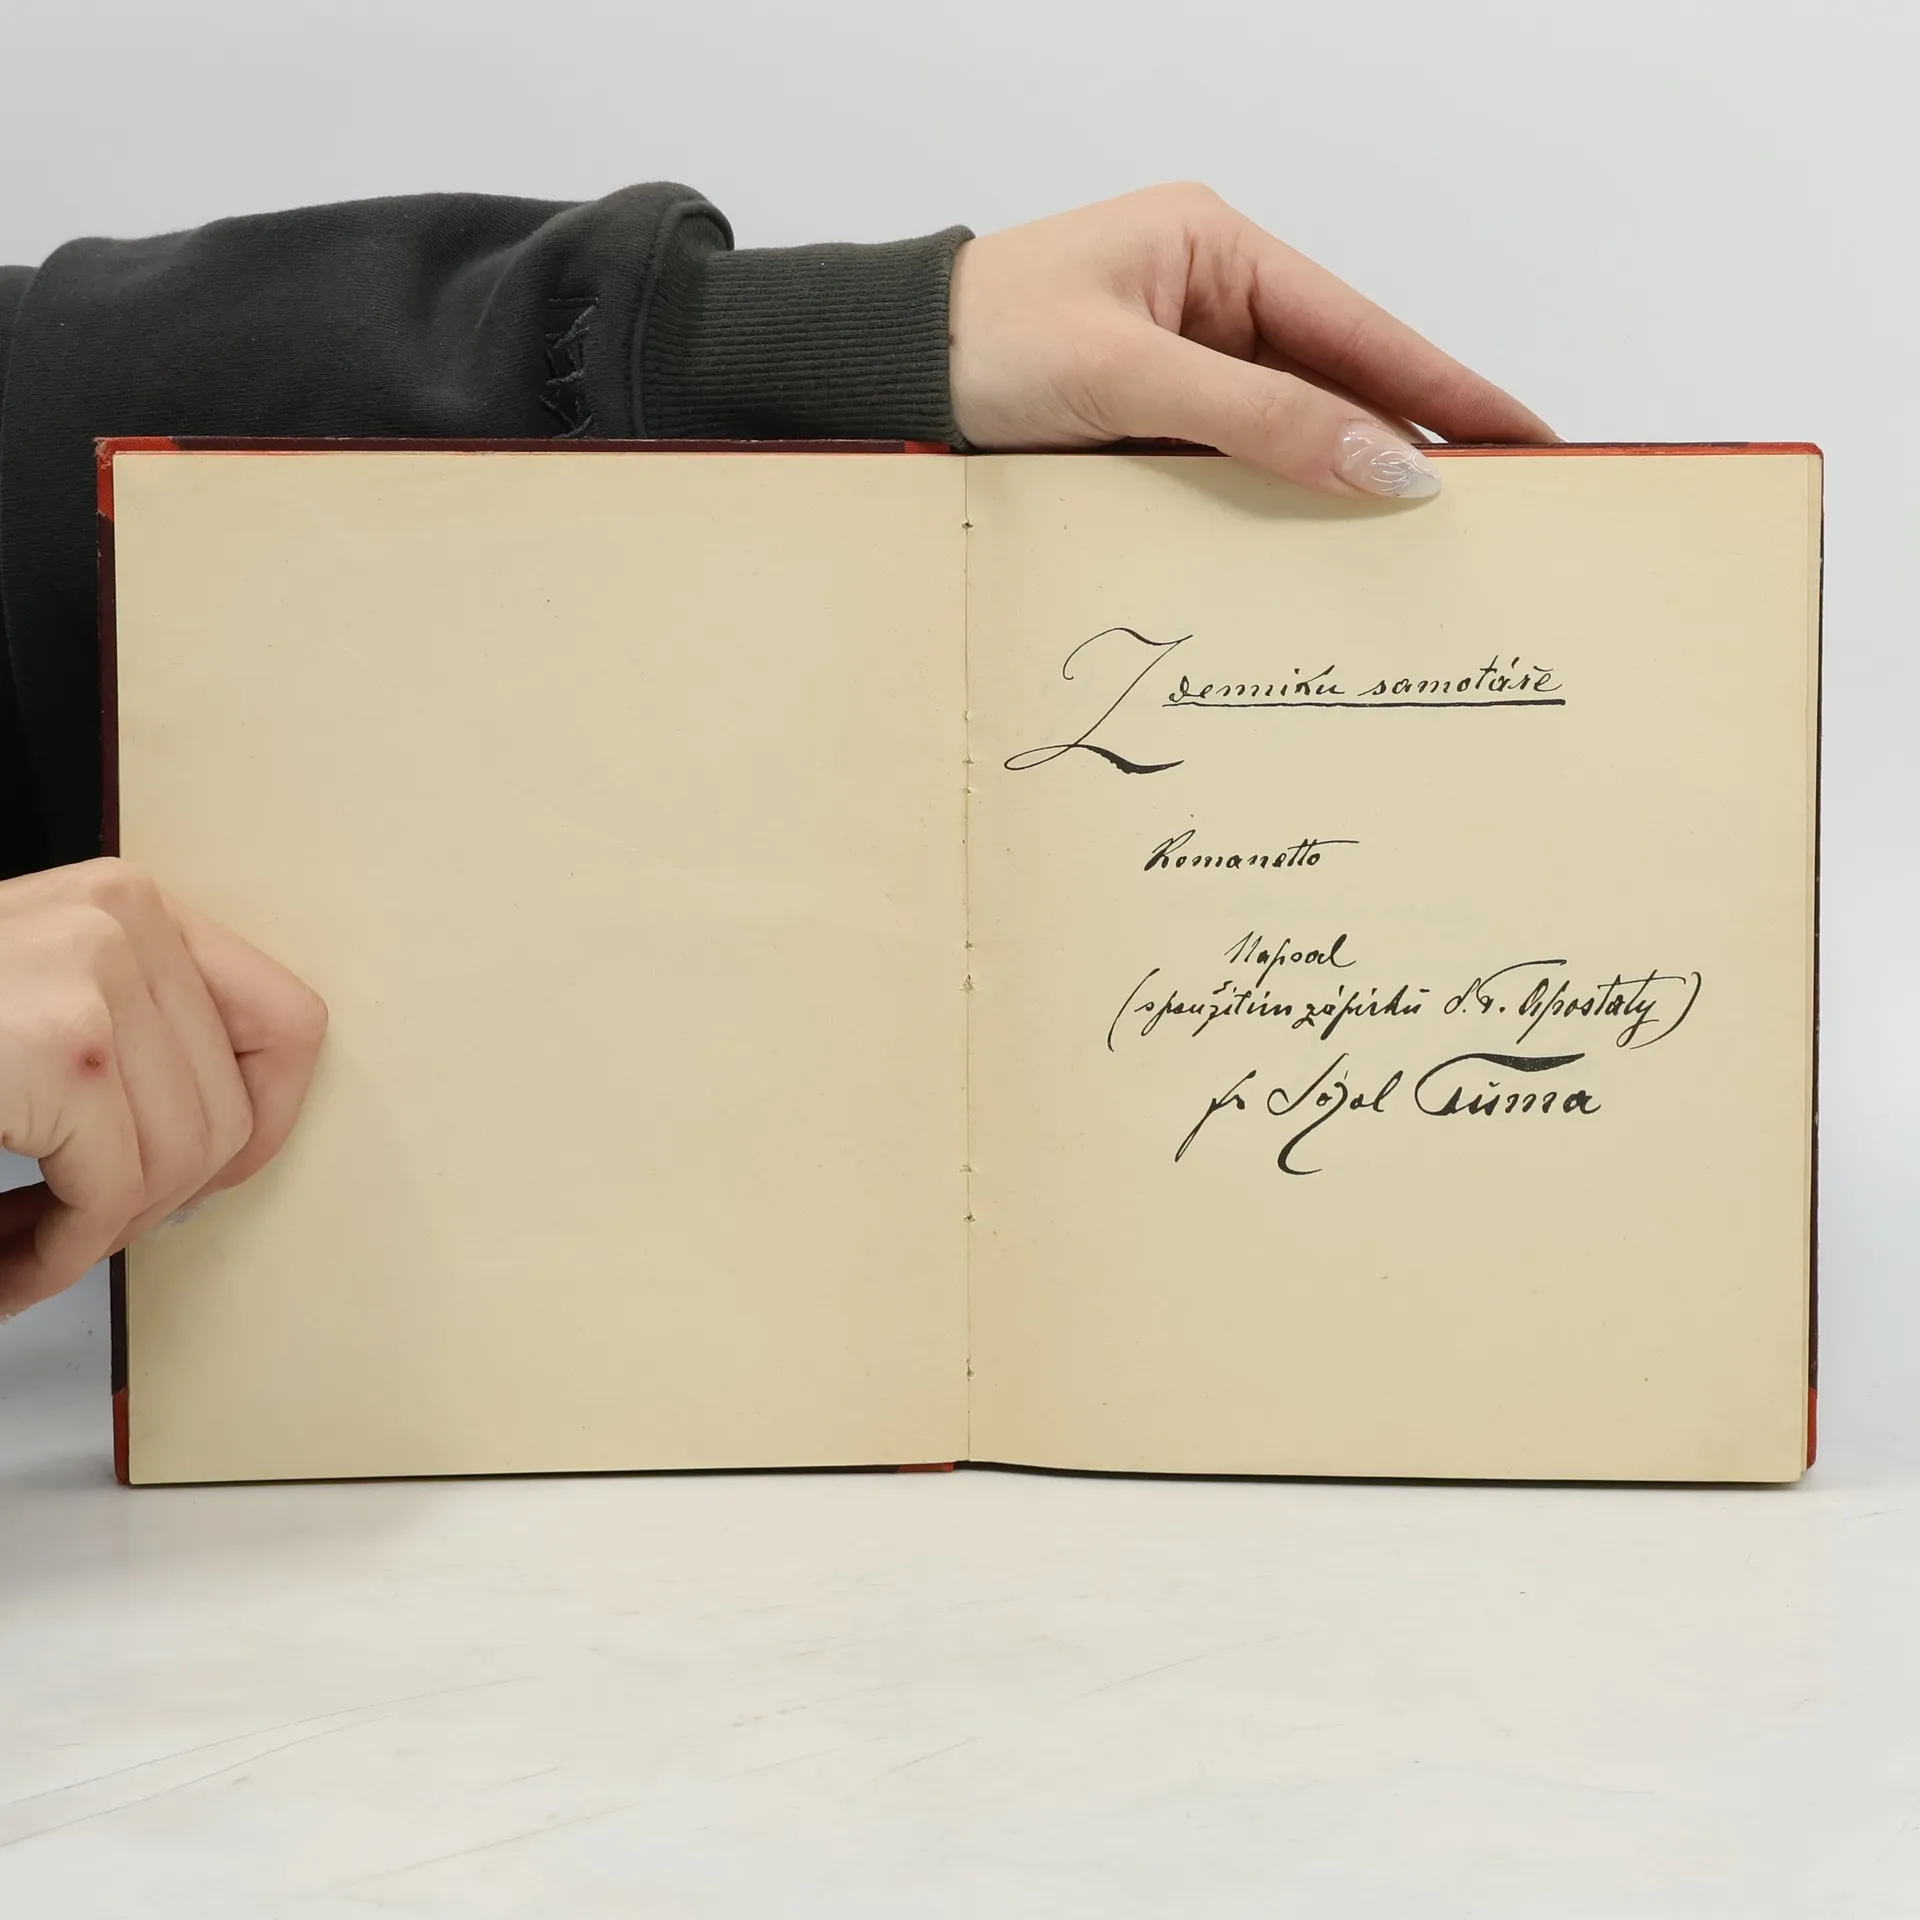 Z denniku samotáře
Romanetto
Napsal
(s použitím zápisků d.r. Apostaty)
fr Sázal Tůma